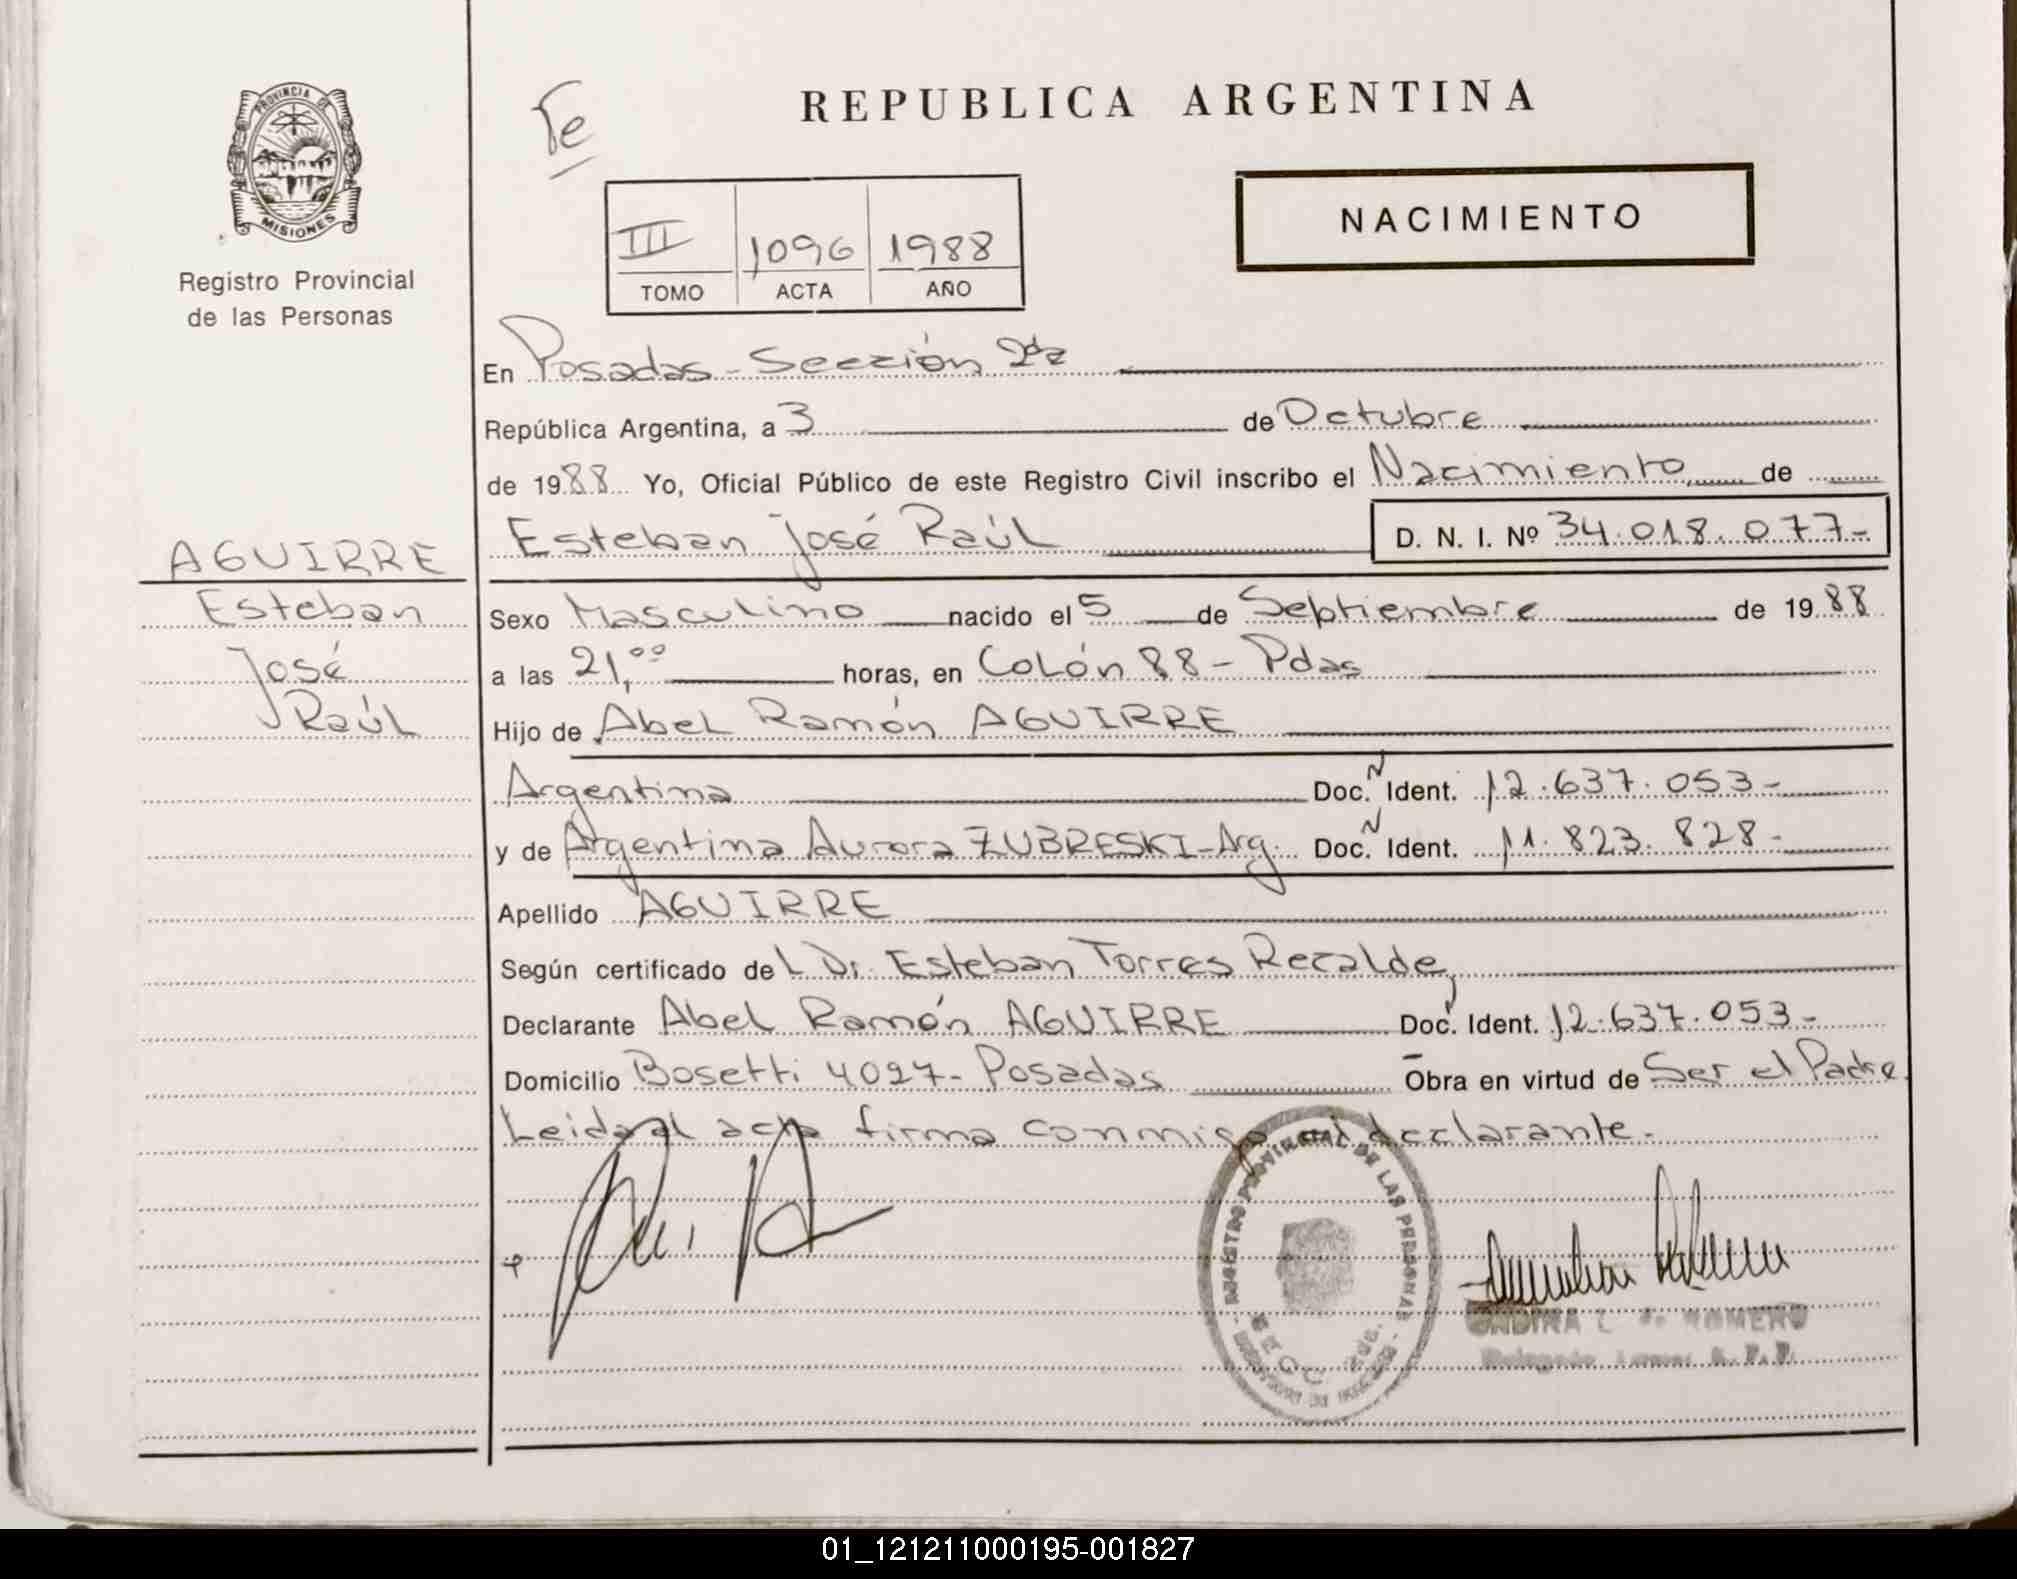 PROVINCIA DE
MISIONES
Registro Provincial
de las Personas
AGUIRRE
Esteban
José
Raúl
Te
REPUBLICA ARGENTINA
NACIMIENTO
III 1096 1988
TOMO ACTA AÑO
En Posadas - Sección 2da
República Argentina, a 3 de Octubre
de 1988 Yo, Oficial Público de este Registro Civil inscribo el Nacimiento de
Esteban José Raúl D. N. I. Nº 34.018.077-
Sexo Masculino nacido el 5 de Septiembre de 1988
a las 21,00 horas, en Colón 88 - Pdas
Hijo de Abel Ramón AGUIRRE
Argentina Doc. N Ident. 12.637.053-
y de Argentina Aurora ZUBRESKI - Arg. Doc. N Ident. 11.823.828-
Apellido AGUIRRE
Según certificado del Dr. Esteban Torres Recalde,
Declarante Abel Ramón AGUIRRE Doc. Ident. 12.637.053-
Domicilio Bosetti 4027 - Posadas Obra en virtud de Ser el Padre.
Leida el acta firma conmigo el declarante.
REGISTRO PROVINCIAL DE LAS PERSONAS
SECC. 2da.
ROMERO